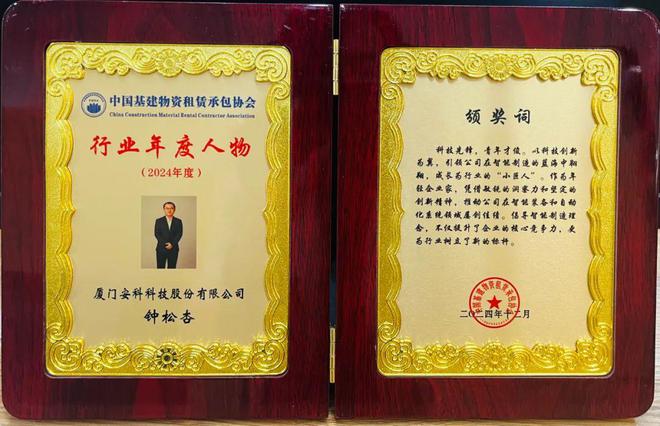 中国基建物资租赁承包协会
China Construction Material Rental Contractor Association
行业年度人物
（2024年度）
厦门安科科技股份有限公司
钟松杏
颁奖词
科技先锋，青年才俊。以科技创新
为翼，引领公司在智能制造的蓝海中翱
翔，成长为行业的“小巨人”。作为年
轻企业家，凭借敏锐的洞察力和坚定的
创新精神，推动公司在智能装备和自动
化系统领域屡创佳绩。倡导智能制造理
念，不仅提升了企业的核心竞争力，更
为行业树立了新的标杆。
中国基建物资租赁承包协会
二〇二四年十二月